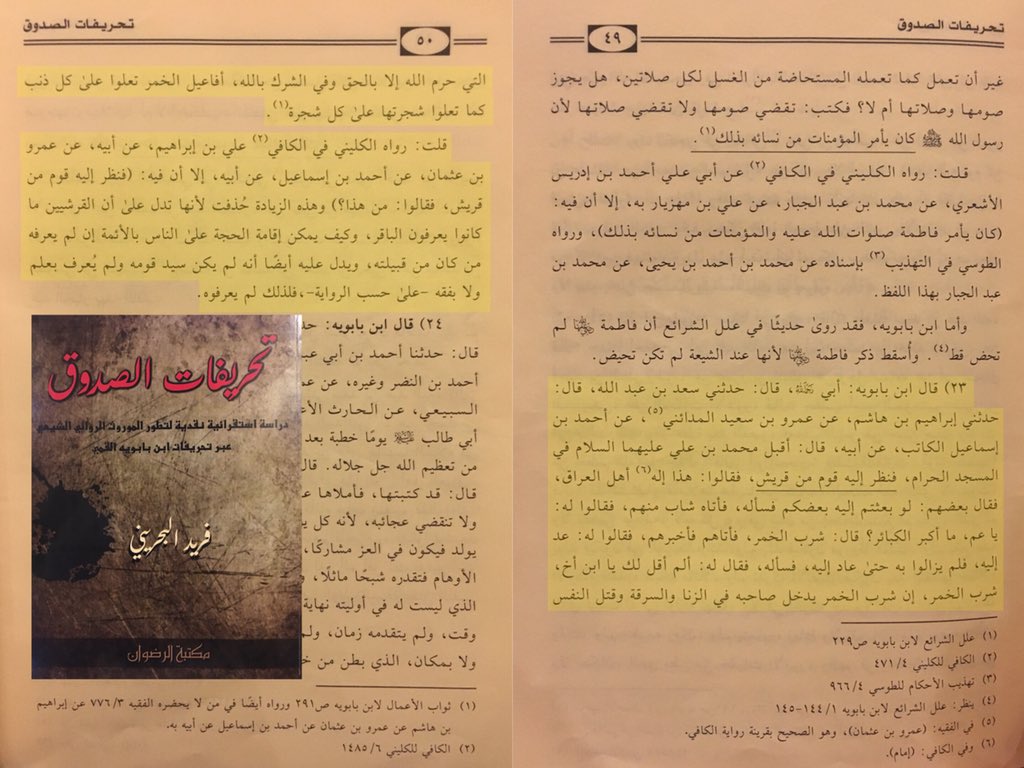 تحريفات الصدوق
٤٩
غير أن تعمل كما تعمله المستحاضة من الغسل لكل صلاتين، هل يجوز
صومها وصلاتها أم لا؟ فكتب: تقضي صومها ولا تقضي صلاتها لأن
رسول الله ﷺ كان يأمر المؤمنات من نسائه بذلك(١).
قلت: رواه الكليني في الكافي(٢) عن أبي علي أحمد بن إدريس
الأشعري، عن محمد بن عبد الجبار، عن علي بن مهزيار به، إلا أن فيه:
(كان يأمر فاطمة صلوات الله عليه والمؤمنات من نسائه بذلك)، ورواه
الطوسي في التهذيب(٣) بإسناده عن محمد بن أحمد بن يحيى، عن محمد بن
عبد الجبار بهذا اللفظ.
وأما ابن بابويه، فقد روى حديثًا في علل الشرائع أن فاطمة لم
تحض قط(٤). وأُسقط ذكر فاطمة لأنها عند الشيعة لم تكن تحيض.
٢٣) قال ابن بابويه: أبي، قال: حدثني سعد بن عبد الله، قال:
حدثني إبراهيم بن هاشم، عن عمرو بن سعيد المدائني(٥) عن أحمد بن
إسماعيل الكاتب، عن أبيه، قال: أقبل محمد بن علي عليهما السلام في
المسجد الحرام، فنظر إليه قوم من قريش، فقالوا: هذا إله(٦) أهل العراق،
فقال بعضهم: لو بعثتم إليه بعضكم فسأله، فأتاه شاب منهم، فقالوا له:
يا عم، ما أكبر الكبائر؟ قال: شرب الخمر، فأتاهم فأخبرهم، فقالوا له: عد
إليه، فلم يزالوا به حتى عاد إليه، فسأله، فقال له: ألم أقل لك يا ابن أخ،
شرب الخمر، إن شرب الخمر يدخل صاحبه في الزنا والسرقة وقتل النفس
(١) علل الشرائع لابن بابويه ص٢٢٩
(٢) الكافي للكليني ٤/ ٤٧١
(٣) تهذيب الأحكام للطوسي ٤/ ٩٦٦
(٤) ينظر: علل الشرائع لابن بابويه ١/ ١٤٤-١٤٥
(٥) في الفقيه: (عمرو بن عثمان)، وهو الصحيح بقرينة رواية الكافي.
(٦) وفي الكافي: (إمام).
تحريفات الصدوق
٥٠
التي حرم الله إلا بالحق وفي الشرك بالله، أفاعيل الخمر تعلوا على كل ذنب
كما تعلوا شجرتها على كل شجرة(١).
قلت: رواه الكليني في الكافي(٢) علي بن إبراهيم، عن أبيه، عن عمرو
بن عثمان، عن أحمد بن إسماعيل، عن أبيه، إلا أن فيه: (فنظر إليه قوم من
قريش، فقالوا: من هذا؟) وهذه الزيادة حُذفت لأنها تدل على أن القرشيين ما
كانوا يعرفون الباقر، وكيف يمكن إقامة الحجة على الناس بالأئمة إن لم يعرفه
من كان من قبيلته، ويدل عليه أيضًا أنه لم يكن سيد قومه ولم يُعرف بعلم
ولا بفقه -على حسب الرواية-،فلذلك لم يعرفوه.
٢٤) قال ابن بابويه:
قال: حدثنا أحمد بن أبي
أحمد بن النضر وغيره، عن
السبيعي، عن الحارث
أبي طالب يومًا خطبة بعد
من تعظيم الله جل جلاله. قال
قال: قد كتبتها، فأملاها
ولا تنقضي عجائبه، لأنه كل
يولد فيكون في العز مشاركًا،
الأوهام فتقدره شبحًا ماثلًا،
الذي ليست له في أوليته نهاية
وقت، ولم يتقدمه زمان،
ولا بمكان، الذي بطن من
(١) ثواب الأعمال لابن بابويه ص٢٩١ ورواه أيضًا في من لا يحضره الفقيه ٣/ ٧٧٦ عن إبراهيم
بن هاشم عن عمرو بن عثمان عن أحمد بن إسماعيل عن أبيه به.
(٢) الكافي للكليني ٦/ ١٤٨٥
تحريفات الصدوق
دراسة استقرائية نقدية لتطور الموروث الروائي الشيعي
عبر تحريفات ابن بابويه القمي
فريد البحريني
مكتبة الرضوان